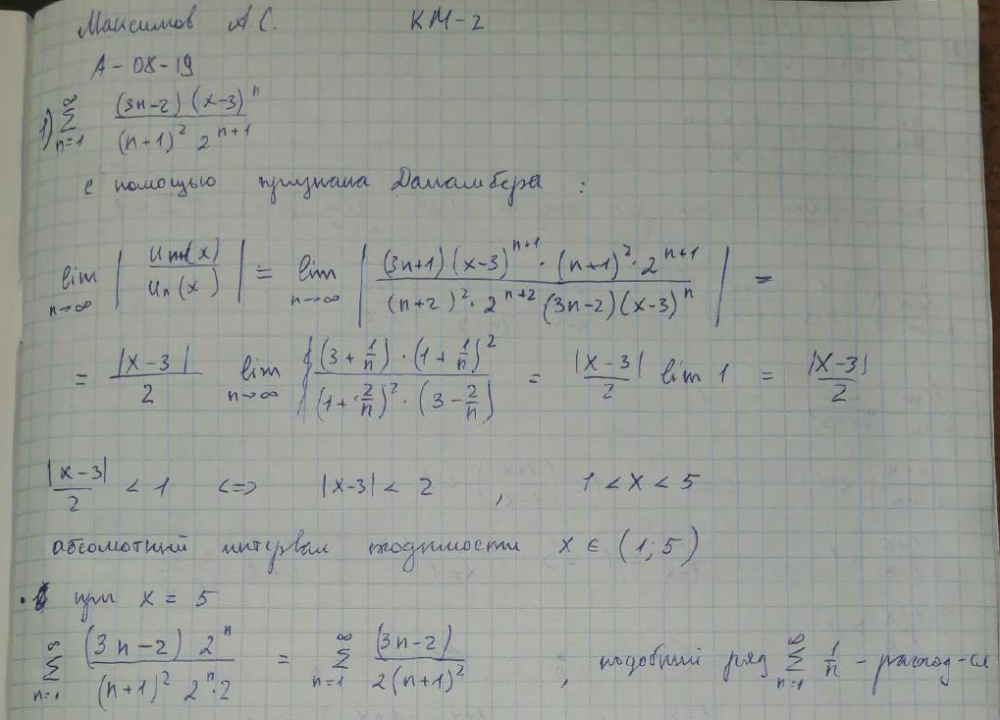 Максимов А.С. КМ-2
А-08-19
1) ∑_{n=1}^{∞} (3n-2)(x-3)^n / ((n+1)^2 2^{n+1})
с помощью признака Даламбера :
lim_{n→∞} | u_{n+1}(x) / u_n(x) | = lim_{n→∞} | (3n+1)(x-3)^{n+1} · (n+1)^2 · 2^{n+1} / ((n+2)^2 · 2^{n+2} (3n-2)(x-3)^n) | =
= |x-3|/2 lim_{n→∞} (3+1/n)·(1+1/n)^2 / ((1+2/n)^2·(3-2/n)) = |x-3|/2 lim 1 = |x-3|/2
|x-3|/2 < 1 <=> |x-3| < 2 , 1 < x < 5
абсолютный интервал сходимости x ∈ (1;5)
• при x = 5
∑_{n=1}^{∞} (3n-2) 2^n / ((n+1)^2 2^n·2) = ∑_{n=1}^{∞} (3n-2) / (2(n+1)^2) ; подобный ряд ∑_{n=1}^{∞} 1/n - расход-ся